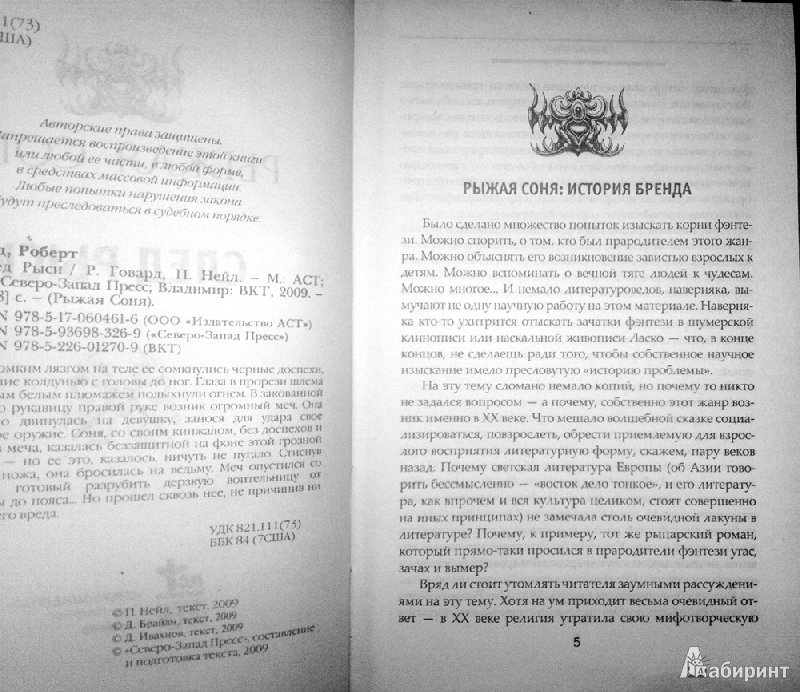 1(73)
США)
Авторские права защищены.
Запрещается воспроизведение этой книги
или любой ее части, в любой форме,
в средствах массовой информации.
Любые попытки нарушения закона
будут преследоваться в судебном порядке.
д, Роберт
ед Рыси / Р. Говард, П. Нейл. – М.: АСТ;
Северо-Запад Пресс; Владимир: ВКТ, 2009. –
8] с. – (Рыжая Соня).
N 978-5-17-060461-6 (ООО «Издательство АСТ»)
N 978-5-93698-326-9 («Северо-Запад Пресс»)
N 978-5-226-01270-9 (ВКТ)
омким лязгом на теле ее сомкнулись черные доспехи,
ние колдунью с головы до ног. Глаза в прорези шлема
ым белым плюмажем полыхнули огнем. В закованной
ю рукавицу правой руке возник огромный меч. Она
о двинулась на девушку, занося для удара свое
ое оружие. Соня, со своим кинжалом, без доспехов и
меча, казалась беззащитной на фоне этой грозной
— но ее это, казалось, ничуть не пугало. Стиснув
ножа, она бросилась на ведьму. Меч опустился со
готовый разрубить дерзкую воительницу от
ы до пояса... Но прошел сквозь нее, не причинив ни
его вреда.
УДК 821.111(73)
ББК 84 (7США)
© П. Нейл, текст, 2009
© Д. Брайан, текст, 2009
© Д. Ивахнов, текст, 2009
© «Северо-Запад Пресс», составление
и подготовка текста, 2009
РЫЖАЯ СОНЯ: ИСТОРИЯ БРЕНДА
Было сделано множество попыток изыскать корни фэнте-
зи. Можно спорить, о том, кто был прародителем этого жан-
ра. Можно объяснять его возникновение завистью взрослых к
детям. Можно вспоминать о вечной тяге людей к чудесам.
Можно многое... И немало литературоведов, наверняка, вы-
мучают не одну научную работу на этом материале. Наверня-
ка кто-то ухитрится отыскать зачатки фэнтези в шумерской
клинописи или наскальной живописи Ласко — что, в конце
концов, не сделаешь ради того, чтобы собственное научное
изыскание имело пресловутую «историю проблемы».
На эту тему сломано немало копий, но почему то никто
не задался вопросом — а почему, собственно этот жанр воз-
ник именно в XX веке. Что мешало волшебной сказке социа-
лизироваться, повзрослеть, обрести приемлемую для взрос-
лого восприятия литературную форму, скажем, пару веков
назад. Почему светская литература Европы (об Азии гово-
рить бессмысленно — «восток дело тонкое», и его литерату-
ра, как впрочем и вся культура целиком, стоят совершенно
на иных принципах) не замечала столь очевидной лакуны в
литературе? Почему, к примеру, тот же рыцарский роман,
который прямо-таки просился в прародители фэнтези угас,
зачах и вымер?
Вряд ли стоит утомлять читателя заумными рассуждени-
ями на эту тему. Хотя на ум приходит весьма очевидный от-
вет — в XX веке религия утратила свою мифотворческую
5
Лабиринт